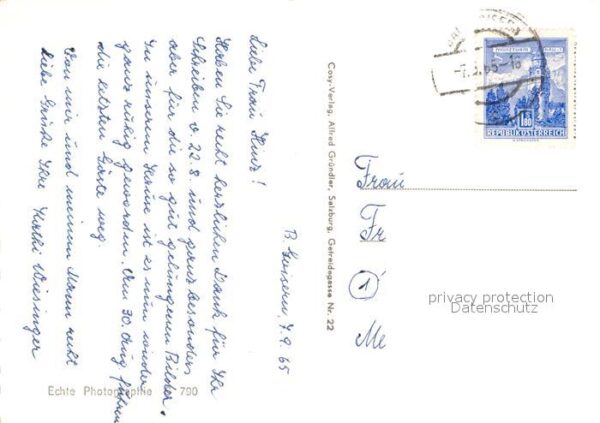 B. Goisern, 7.9.65
Liebe Frau Kunz!
Haben Sie recht herzlichen Dank für Ihr
Schreiben v. 22.8. und ganz besonders
aber für die so gut gelungenen Bilder.
In unserem Hause ist es nun wieder
ganz ruhig geworden. Am 30. Aug. fuhren
die letzten Gäste weg.
Von mir und meinem Mann recht
liebe Grüße Ihre Kathi Wiesinger
Echte Photographie 790
Cosy-Verlag, Alfred Gründler, Salzburg, Getreidegasse Nr. 22
-7.9.65-18
1.80
REPUBLIK ÖSTERREICH
Frau
Fr
1
Me
privacy protection
Datenschutz